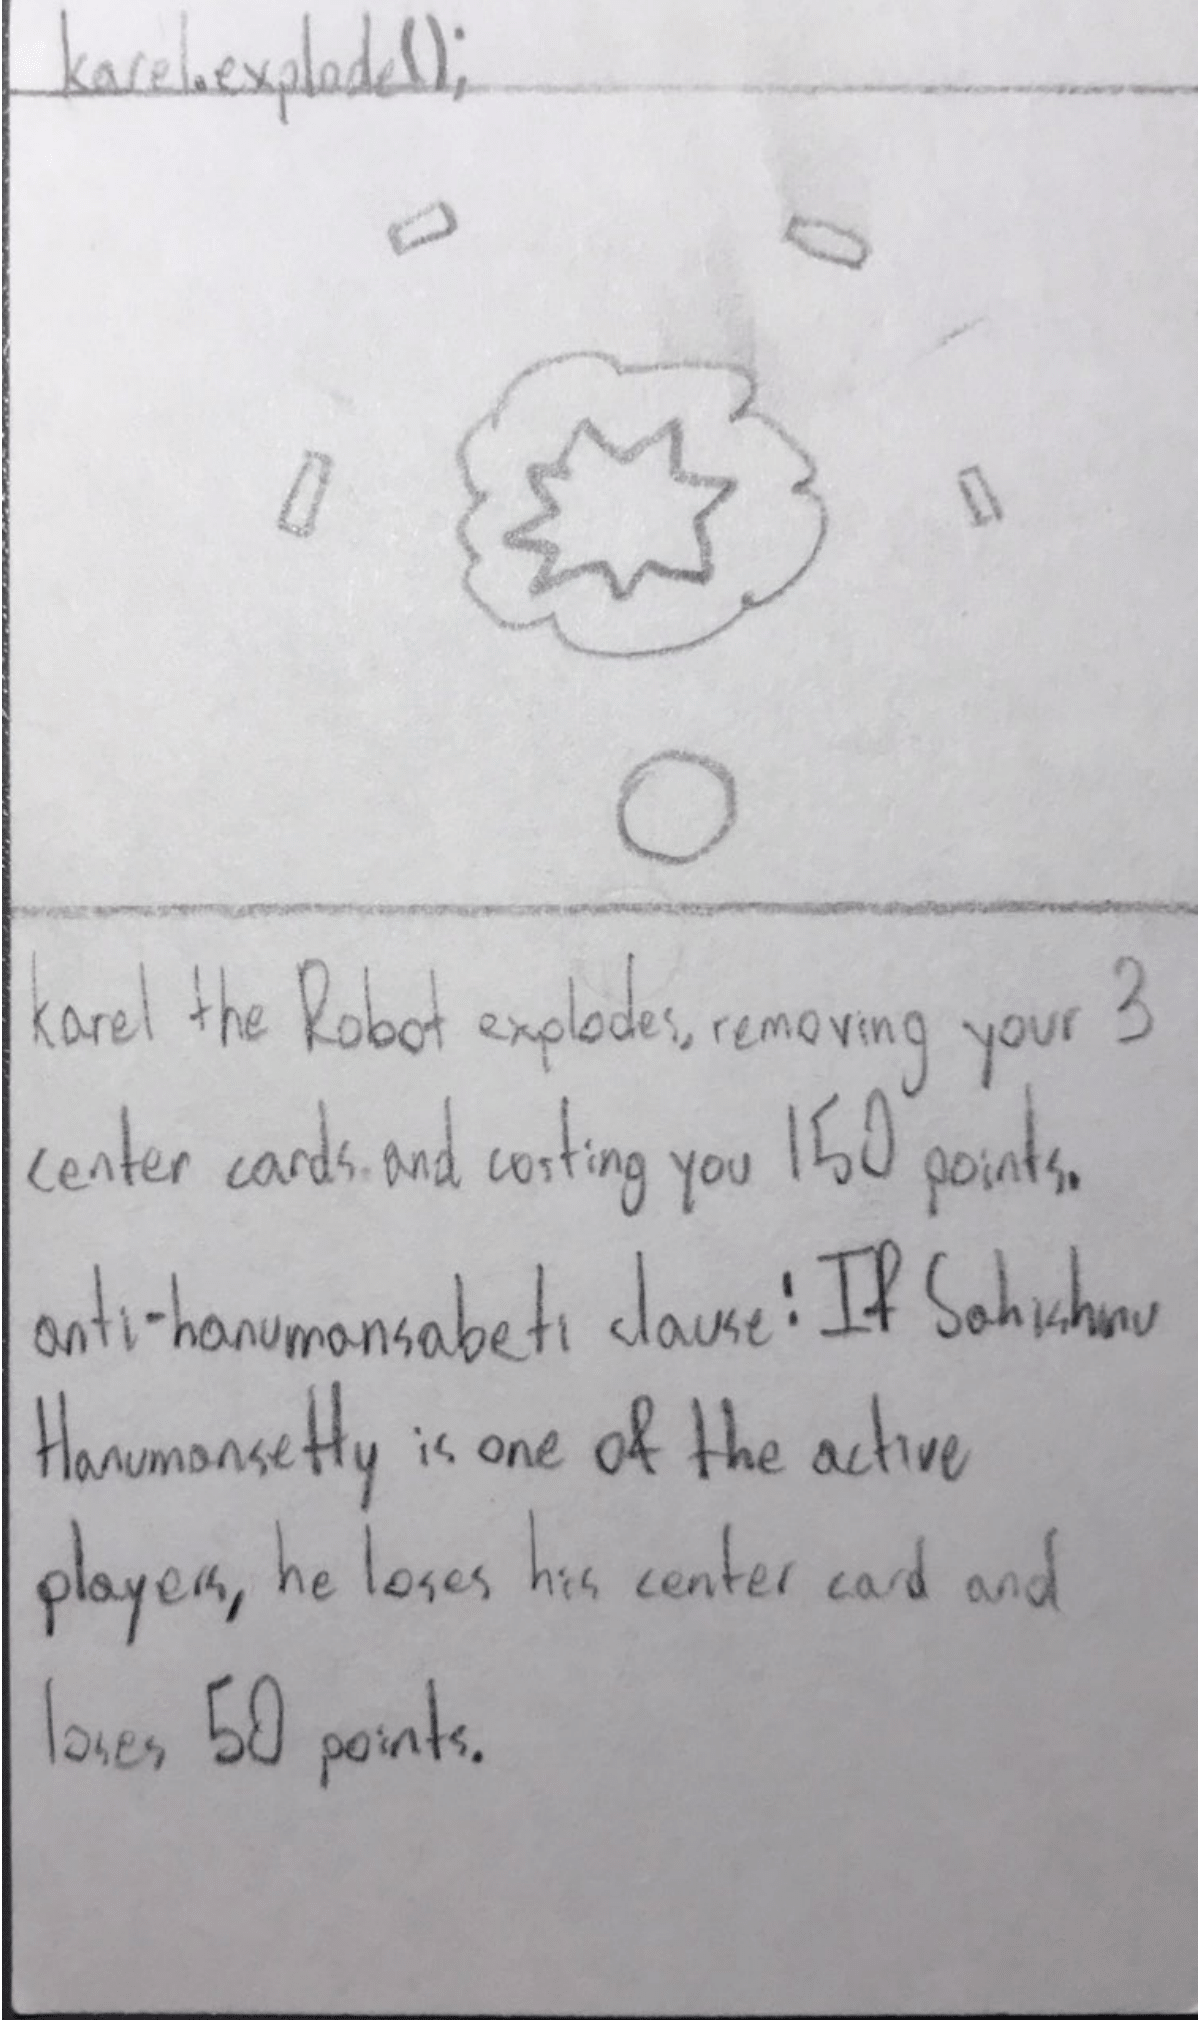 karel.explode();
karel the Robot explodes, removing your 3
center cards and costing you 150 points.
anti-hanumansabeti clause: If Sahishnu
Hanumansetty is one of the active
players, he loses his center card and
loses 50 points.